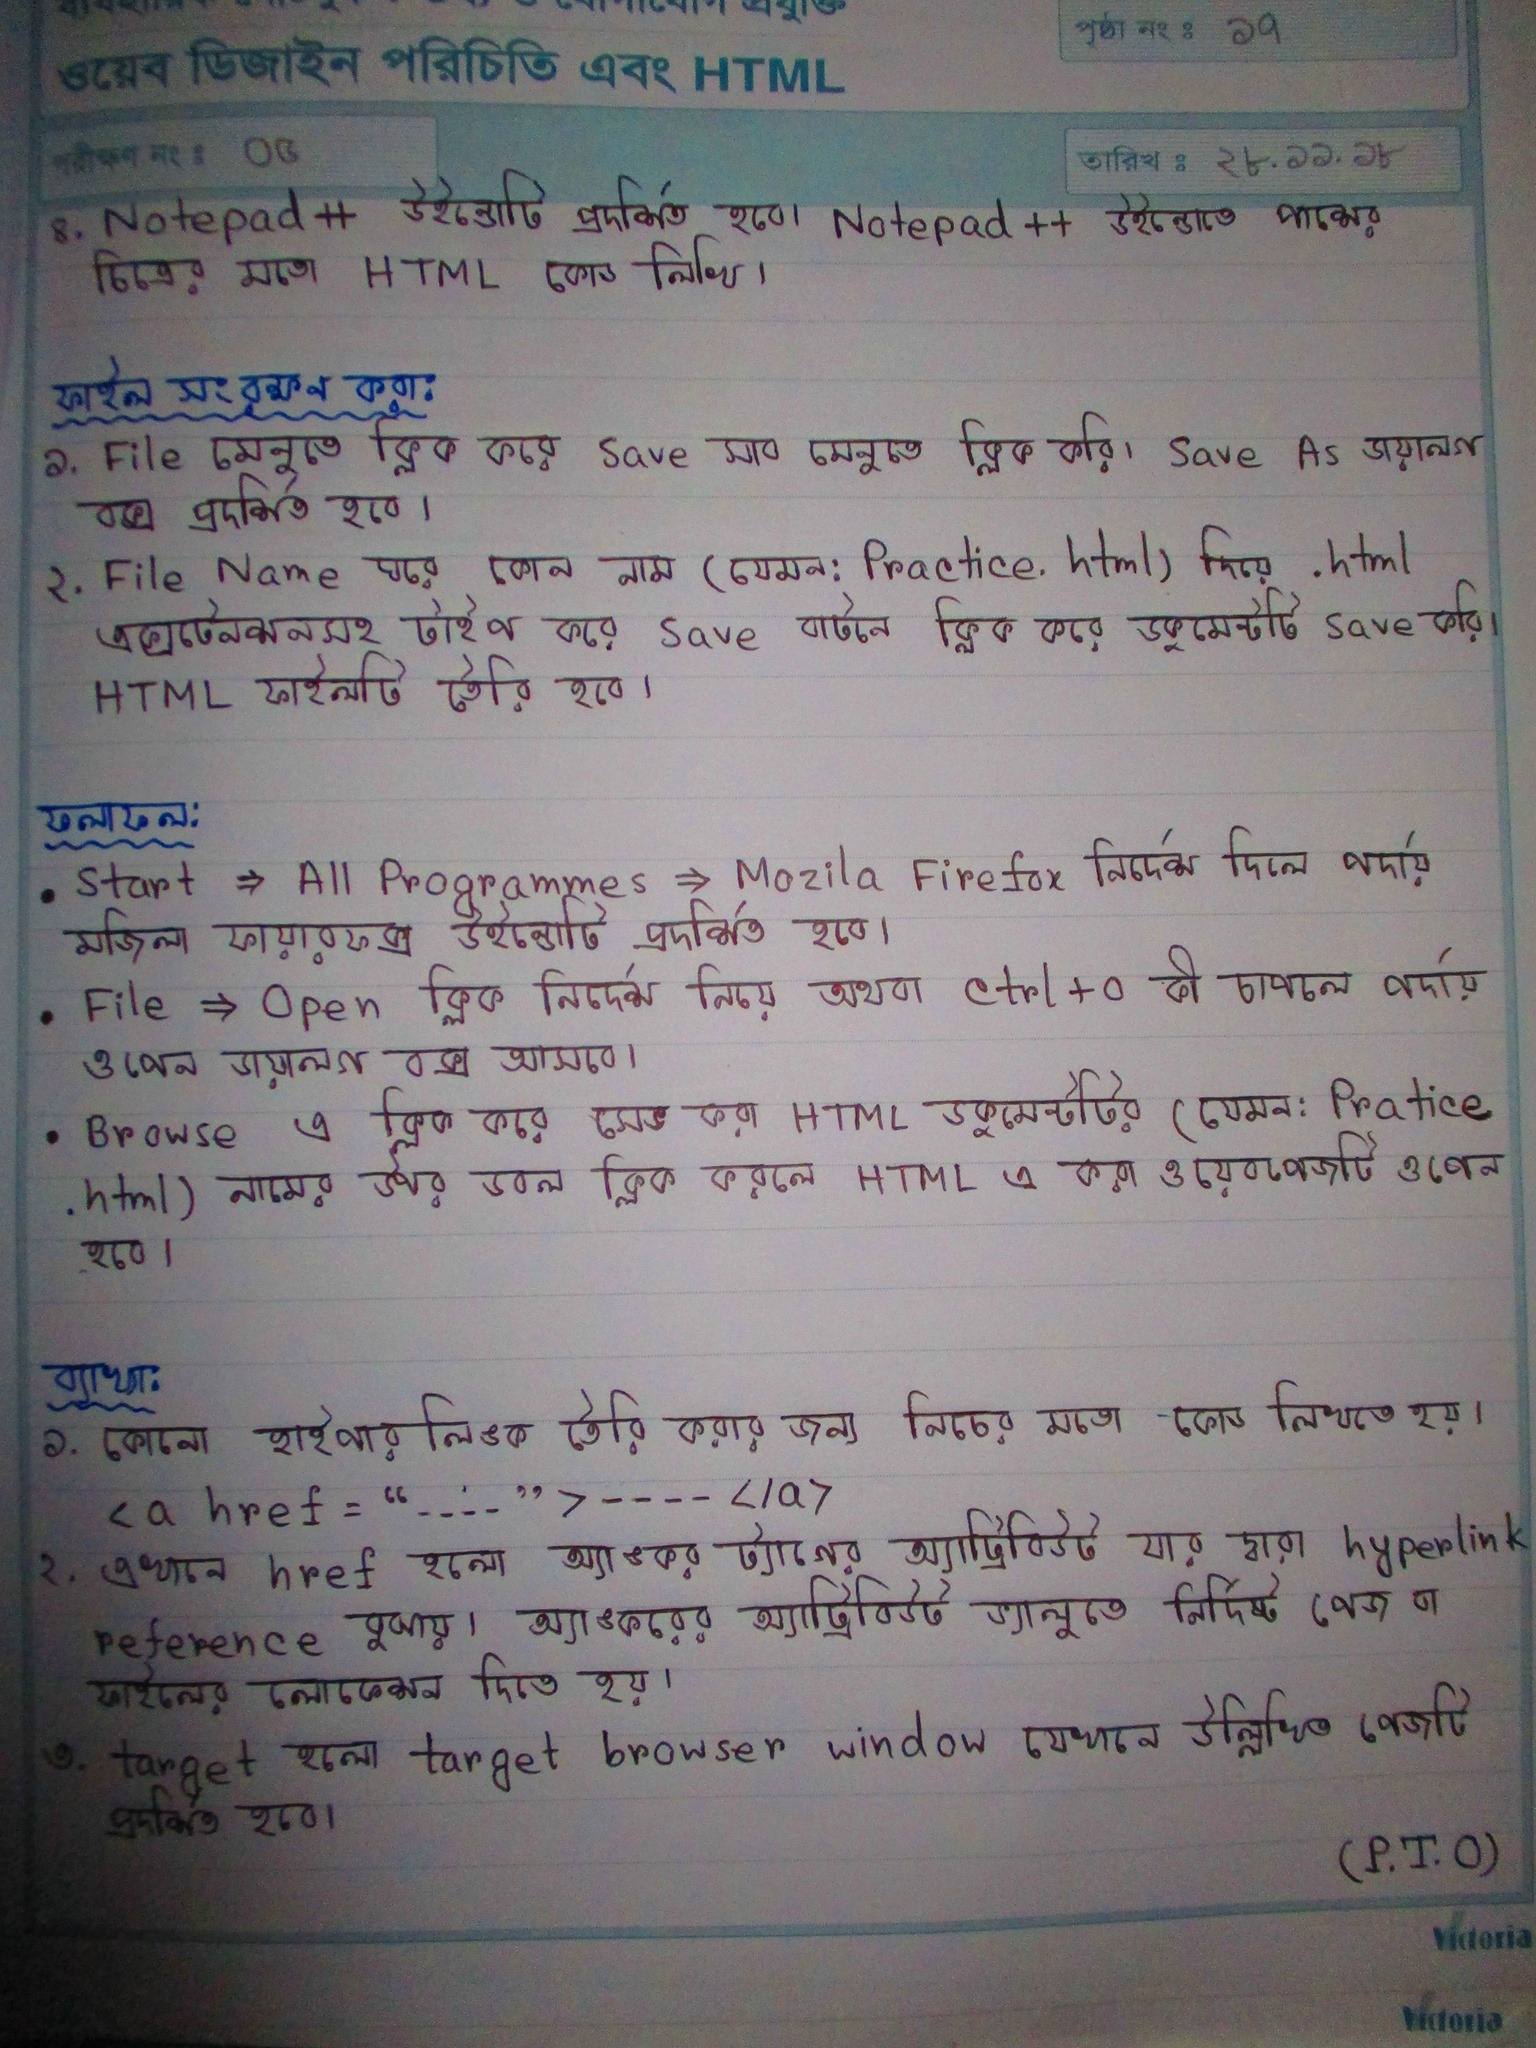 ওয়েব ডিজাইন পরিচিতি এবং HTML
পৃষ্ঠা নং : ১৭
পরীক্ষণ নং : ০৫
তারিখ : ২৮.১১.১৮
৪. Notepad++ উইন্ডোটি প্রদর্শিত হবে। Notepad++ উইন্ডোতে পাশের
চিত্রের মতো HTML কোড লিখি।
ফাইল সংরক্ষন করা:
১. File মেনুতে ক্লিক করে Save সাব মেনুতে ক্লিক করি। Save As ডায়ালগ
বক্স প্রদর্শিত হবে।
২. File Name ঘরে কোন নাম (যেমন: Practice.html) দিয়ে .html
এক্সটেনশনসহ টাইপ করে Save বাটনে ক্লিক করে ডকুমেন্টটি Save করি।
HTML ফাইলটি তৈরি হবে।
ফলাফল:
• Start ⇒ All Programmes ⇒ Mozila Firefox নির্দেশ দিলে পর্দায়
মজিলা ফায়ারফক্স উইন্ডোটি প্রদর্শিত হবে।
• File ⇒ Open ক্লিক নির্দেশ নিয়ে অথবা Ctrl+O কী চাপলে পর্দায়
ওপেন ডায়ালগ বক্স আসবে।
• Browse এ ক্লিক করে সেভ করা HTML ডকুমেন্টটির (যেমন: Pratice
.html) নামের উপর ডবল ক্লিক করলে HTML এ করা ওয়েবপেজটি ওপেন
হবে।
ব্যাখ্যা:
১. কোনো হাইপারলিঙক তৈরি করার জন্য নিচের মতো কোড লিখতে হয়।
<a href = “-----” > ---- </a>
২. এখানে href হলো অ্যাঙকর ট্যাগের অ্যাট্রিবিউট যার দ্বারা hyperlink
reference বুঝায়। অ্যাঙকরের অ্যাট্রিবিউট ভ্যালুতে নির্দিষ্ট পেজ বা
ফাইলের লোকেশন দিতে হয়।
৩. target হলো target browser window যেখানে উল্লিখিত পেজটি
প্রদর্শিত হবে।
(P.T.O)
Victoria
Victoria